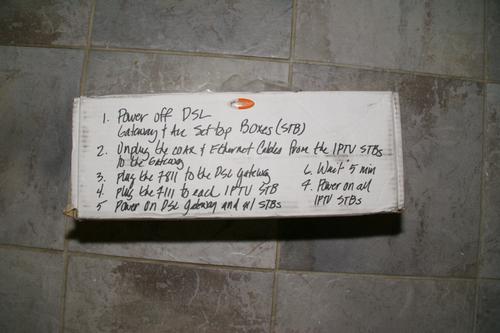 1. Power off DSL
Gateway & All Set top Boxes (STB)
2. Unplug the coax & Ethernet Cables from the IPTV STBs
to the Gateway
3. plug the 7111 to the DSL gateway
4. plug the 7111 to each IPTV STB
5 Power on DSL gateway and all STBs
6. Wait 5 min
7. Power on all
IPTV STBs